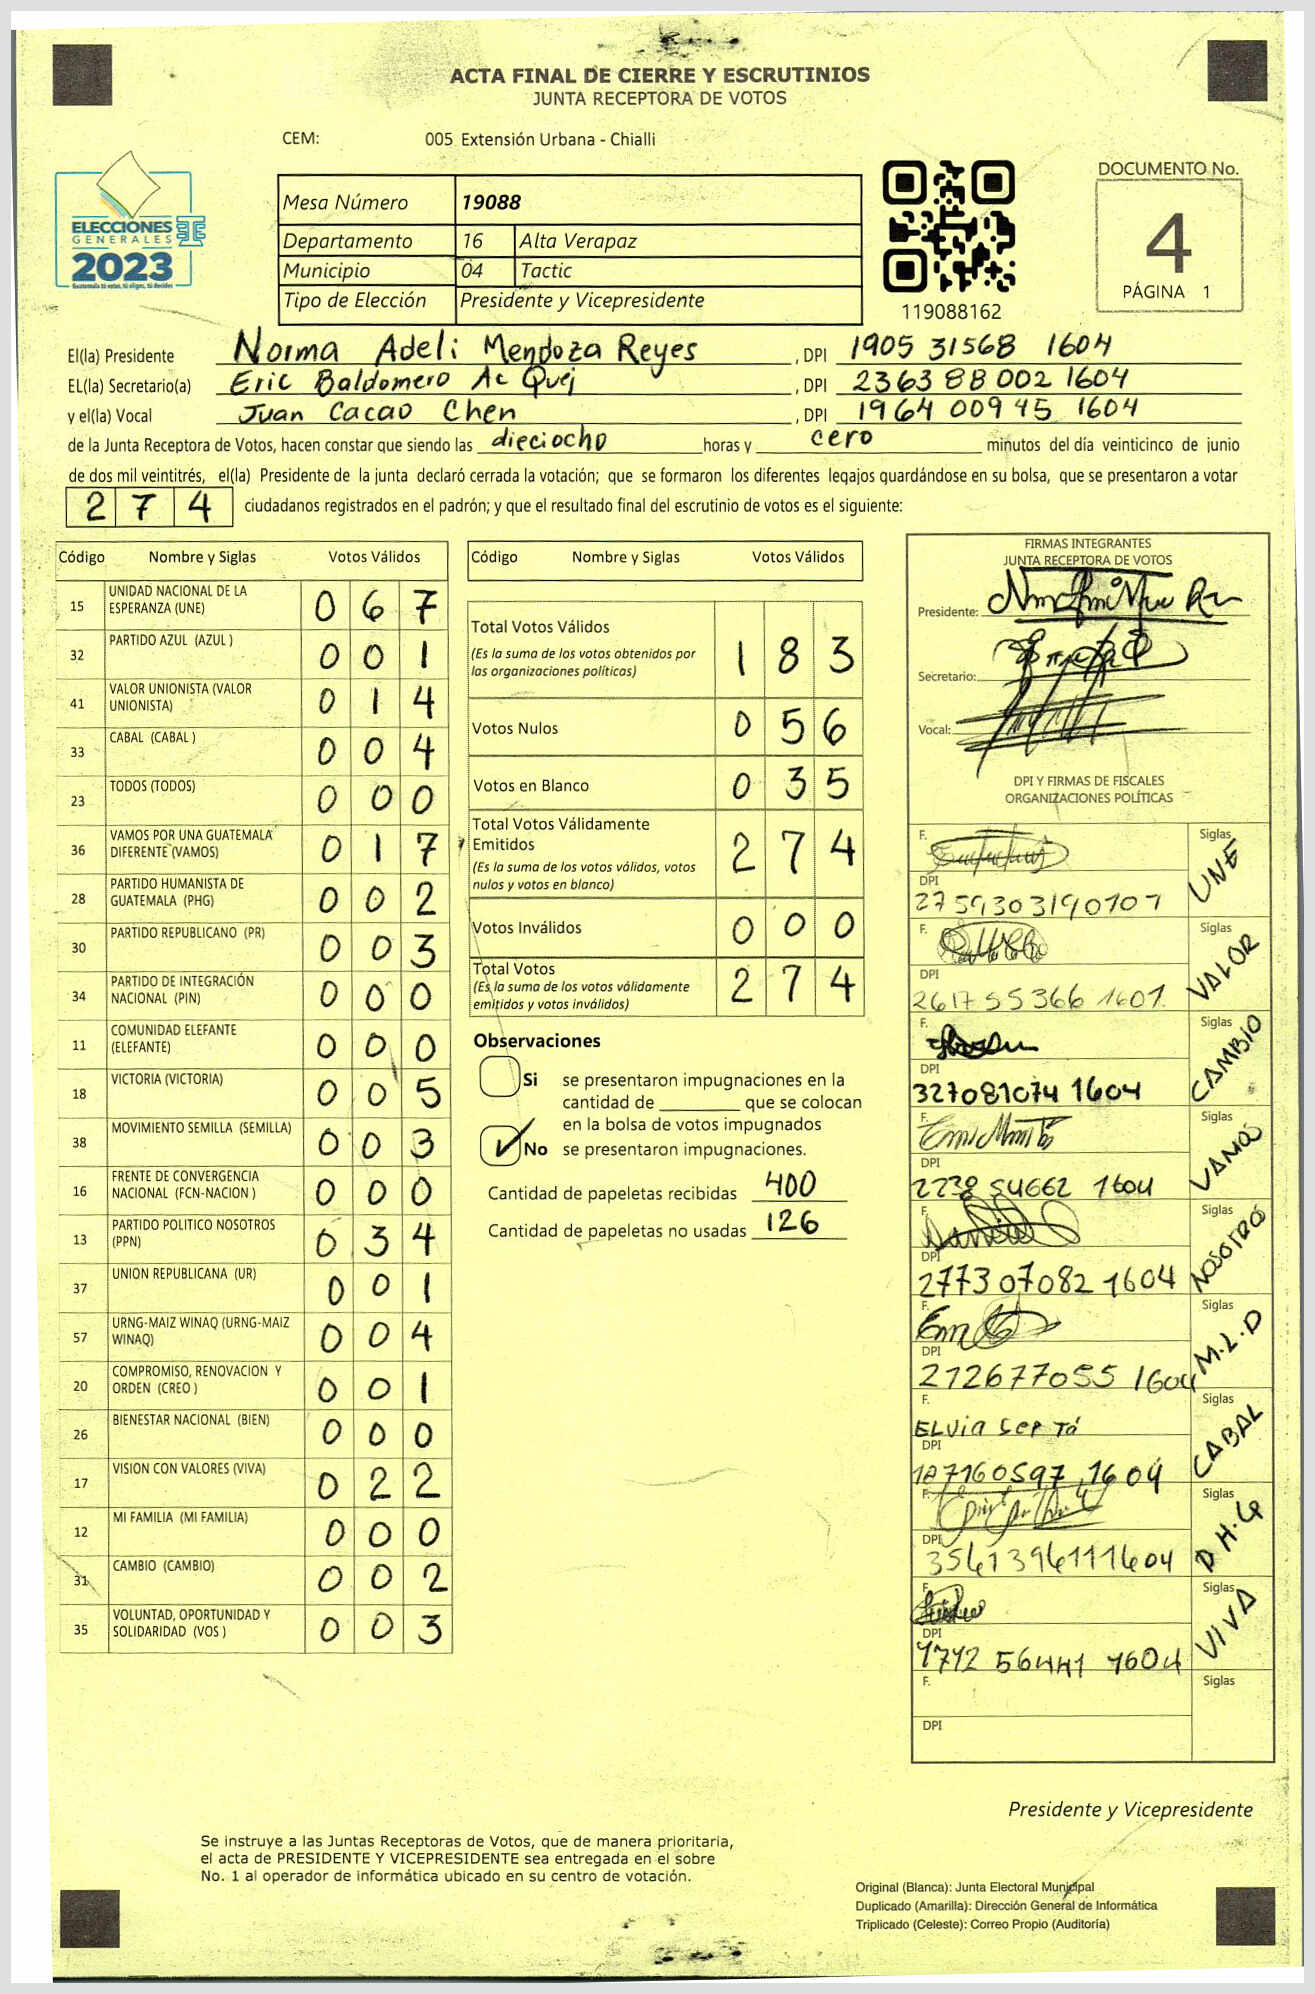 ACTA FINAL DE CIERRE Y ESCRUTINIOS
JUNTA RECEPTORA DE VOTOS
CEM: 005 Extensión Urbana - Chialli
ELECCIONES
GENERALES
2023
Guatemala tú votas, tú eliges, tú decides
Mesa Número 19088
Departamento 16 Alta Verapaz
Municipio 04 Tactic
Tipo de Elección Presidente y Vicepresidente
119088162
DOCUMENTO No.
4
PÁGINA 1
El(la) Presidente Norma Adeli Mendoza Reyes , DPI 1905 31568 1604
EL(la) Secretario(a) Eric Baldomero Ac Quej , DPI 2363 88 002 1604
y el(la) Vocal Juan Cacao Chen , DPI 1964 009 45 1604
de la Junta Receptora de Votos, hacen constar que siendo las dieciocho horas y cero minutos del día veinticinco de junio
de dos mil veintitrés, el(la) Presidente de la junta declaró cerrada la votación; que se formaron los diferentes legajos guardándose en su bolsa, que se presentaron a votar
2 7 4 ciudadanos registrados en el padrón; y que el resultado final del escrutinio de votos es el siguiente:
Código Nombre y Siglas Votos Válidos
15 UNIDAD NACIONAL DE LA ESPERANZA (UNE) 0 6 7
32 PARTIDO AZUL (AZUL ) 0 0 1
41 VALOR UNIONISTA (VALOR UNIONISTA) 0 1 4
33 CABAL (CABAL ) 0 0 4
23 TODOS (TODOS) 0 0 0
36 VAMOS POR UNA GUATEMALA DIFERENTE (VAMOS) 0 1 7
28 PARTIDO HUMANISTA DE GUATEMALA (PHG) 0 0 2
30 PARTIDO REPUBLICANO (PR) 0 0 3
34 PARTIDO DE INTEGRACIÓN NACIONAL (PIN) 0 0 0
11 COMUNIDAD ELEFANTE (ELEFANTE) 0 0 0
18 VICTORIA (VICTORIA) 0 0 5
38 MOVIMIENTO SEMILLA (SEMILLA) 0 0 3
16 FRENTE DE CONVERGENCIA NACIONAL (FCN-NACION ) 0 0 0
13 PARTIDO POLITICO NOSOTROS (PPN) 0 3 4
37 UNION REPUBLICANA (UR) 0 0 1
57 URNG-MAIZ WINAQ (URNG-MAIZ WINAQ) 0 0 4
20 COMPROMISO, RENOVACION Y ORDEN (CREO ) 0 0 1
26 BIENESTAR NACIONAL (BIEN) 0 0 0
17 VISION CON VALORES (VIVA) 0 2 2
12 MI FAMILIA (MI FAMILIA) 0 0 0
31 CAMBIO (CAMBIO) 0 0 2
35 VOLUNTAD, OPORTUNIDAD Y SOLIDARIDAD (VOS ) 0 0 3
Código Nombre y Siglas Votos Válidos
Total Votos Válidos 1 8 3
(Es la suma de los votos obtenidos por
las organizaciones políticas)
Votos Nulos 0 5 6
Votos en Blanco 0 3 5
Total Votos Válidamente
Emitidos 2 7 4
(Es la suma de los votos válidos, votos
nulos y votos en blanco)
Votos Inválidos 0 0 0
Total Votos 2 7 4
(Es la suma de los votos válidamente
emitidos y votos inválidos)
Observaciones
Si se presentaron impugnaciones en la
cantidad de ________ que se colocan
en la bolsa de votos impugnados
No se presentaron impugnaciones.
Cantidad de papeletas recibidas 400
Cantidad de papeletas no usadas 126
FIRMAS INTEGRANTES
JUNTA RECEPTORA DE VOTOS
Presidente:
Secretario:
Vocal:
DPI Y FIRMAS DE FISCALES
ORGANIZACIONES POLÍTICAS
F. Siglas UNE
DPI
2759303190101
F. Siglas VALOR
DPI
2617 55366 1601
F. Siglas CAMBIO
DPI
327081074 1604
F. Siglas VAMOS
DPI
2238 54662 1604
F. Siglas NOSOTROS
DPI
2773 07082 1604
F. Siglas M.L.D
DPI
212677055 1604
F. Siglas CABAL
ELVia Cep Tá
DPI
187160597 1604
F. Siglas P.H.G
DPI
3561396111604
F. Siglas VIVA
DPI
1712 56441 1604
F. Siglas
DPI
Presidente y Vicepresidente
Se instruye a las Juntas Receptoras de Votos, que de manera prioritaria,
el acta de PRESIDENTE Y VICEPRESIDENTE sea entregada en el sobre
No. 1 al operador de informática ubicado en su centro de votación.
Original (Blanca): Junta Electoral Municipal
Duplicado (Amarilla): Dirección General de Informática
Triplicado (Celeste): Correo Propio (Auditoría)